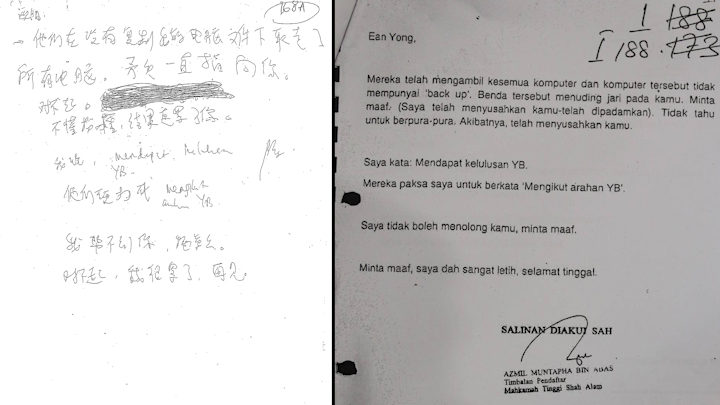 168A
他们在没有复制出的电脑文件下取走了
所有电脑。矛头一直指向你。
对不起。
不懂 结果连累了你。
我说, mendapat kelulusan
YB.
他们 我 mengikut
arahan YB.
我帮不到你,
对不起, 我很累了, 再见.
1 188
I 188. 173
Ean Yong,
Mereka telah mengambil kesemua komputer dan komputer tersebut tidak
mempunyai 'back up'. Benda tersebut menuding jari pada kamu. Minta
maaf. (Saya telah menyusahkan kamu-telah dipadamkan). Tidak tahu
untuk berpura-pura. Akibatnya, telah menyusahkan kamu.
Saya kata: Mendapat kelulusan YB.
Mereka paksa saya untuk berkata 'Mengikut arahan YB'.
Saya tidak boleh menolong kamu, minta maaf.
Minta maaf, saya dah sangat letih, selamat tinggal.
SALINAN DIAKUI SAH
AZMIL MUNTAPHA BIN ABAS
Timbalan Pendaftar
Mahkamah Tinggi Shah Alam